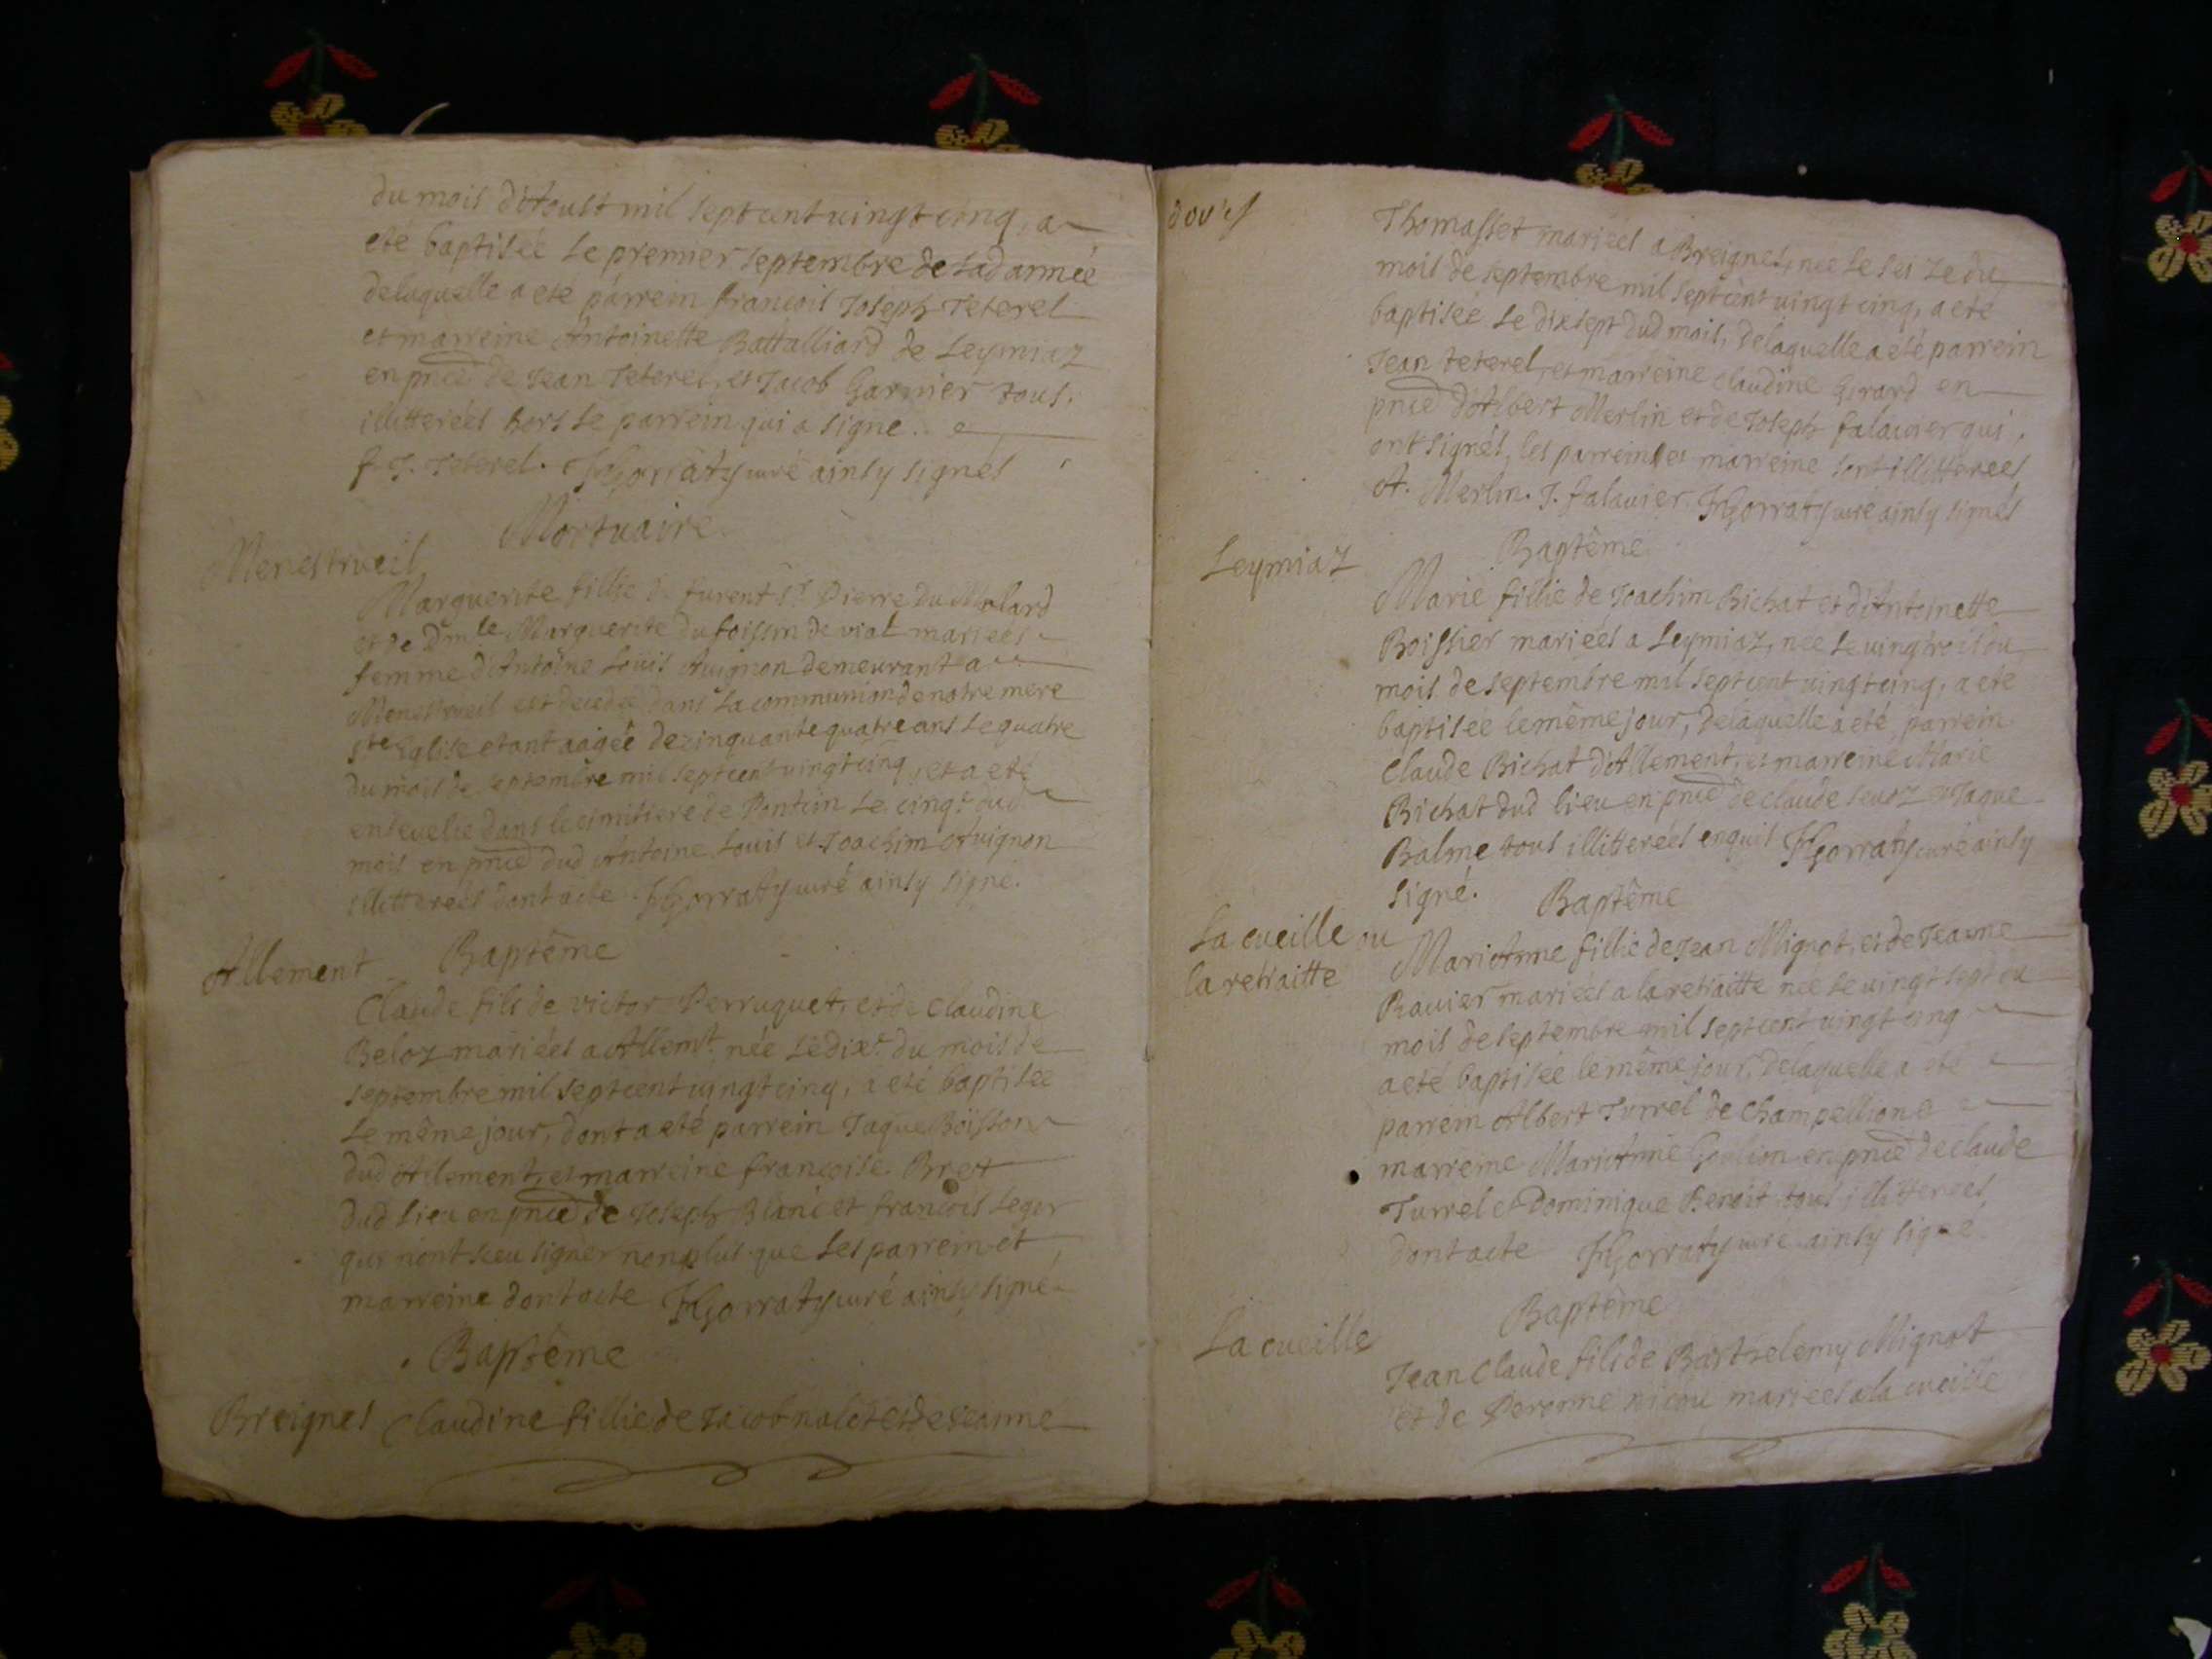 du mois d'Aoust mil sept cent vingt cinq, a
eté baptisée le premier septembre de lad année
delaquelle a eté parrein francois Joseph Teterel
et marreine Antoinette Battalliard de Leymiaz
en pnce de Jean Teterel, et Jacob Garnier tous
illitterées hors le parrein qui a signe.
f. J. Teterel. Gorraty curé ainsy signés
Mortuaire
Menestrueil
Marguerite fillie de furent Sr Pierre Du Molard
et de Dmle Marguerite du de vial mariées
femme d'Antoine Louis Avignon demeurant a
Menestrueil est decedée dans la communion de notre mere
Ste Eglise etant aagée de cinquante quatre ans le quatre
du mois de septembre mil sept cent vingt cinq, et a eté
ensevelie dans le cimitiere de Poncin le cinqe dud
mois en pnce dud Antoine Louis et Joachim Avignon
illitterées dont acte. Gorraty curé ainsy signé.
Allement
Baptême
Claude fils de victor Perruquet, et de Claudine
Beloz mariées a Allemt. née le dixe. du mois de
septembre mil sept cent vingt cinq, a eté baptisée
le même jour, dont a eté parrein Jaque Boisson
dud Allement, et marreine francoise
dud lieu en pnce de Joseph Blanc et francois Leger
qui n'ont sceu signer non plus que les parrein et
marreine dont acte Gorraty curé ainsy signé
Baptême
Breignes Claudine fillie de Jacob nalet et de Jeanne
Thomasset mariées a Breignes, née le seize du
mois de septembre mil sept cent vingt cinq, a eté
baptisée le dix sept dud mois, delaquelle a eté parrein
Jean teterel, et marreine claudine Girard en
pnce d'Albert Merlin et de Joseph falavier qui
ont signés, les parrein et marreine sont illitterées
A. Merlin. J. falavier. Gorraty curé ainsy signés
Leymiaz
Baptême
Marie fillie de Joachim Bichat et d'Antoinette
Boissier mariées a Leymiaz, née le vingtrois du
mois de septembre mil sept cent vingt cinq, a eté
baptisée le même jour, delaquelle a eté parrein
Claude Bichat d'Allement, et marreine Marie
Bichat dud lieu en pnce de claude et Jaque
Balme tous illitterées enquis Gorraty curé ainsy
signé.
Baptême
La cueille ou
la retraitte
Mari Anne fillie de Jean Mignot, et de Jeanne
Ravier mariées a la retraitte née le vingt sept du
mois de septembre mil sept cent vingt cinq
a eté baptisée le même jour, delaquelle a eté
parrein Albert Turrel de Champellion e
marreine Mari Anne en pnce de claude
Turrel et Dominique Benoit tous illitterées
dont acte Gorraty curé ainsy signé
La cueille
Baptême
Jean Claude fils de Barthelemy Mignot
et de Peronne mariées a la cueille